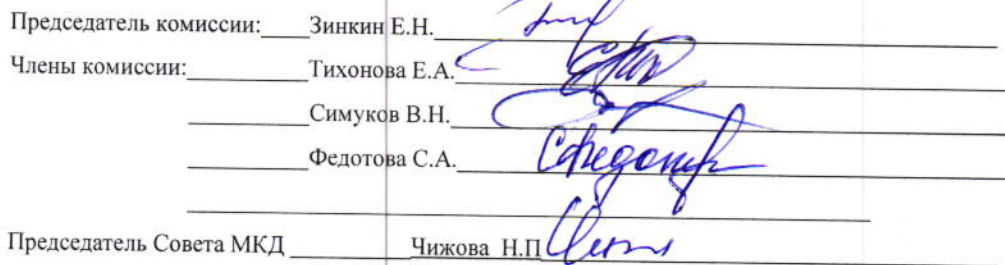 Председатель комиссии:____Зинкин Е.Н.
Члены комиссии:__________Тихонова Е.А.
__________Симуков В.Н.
__________Федотова С.А.
Председатель Совета МКД __________Чижова Н.П